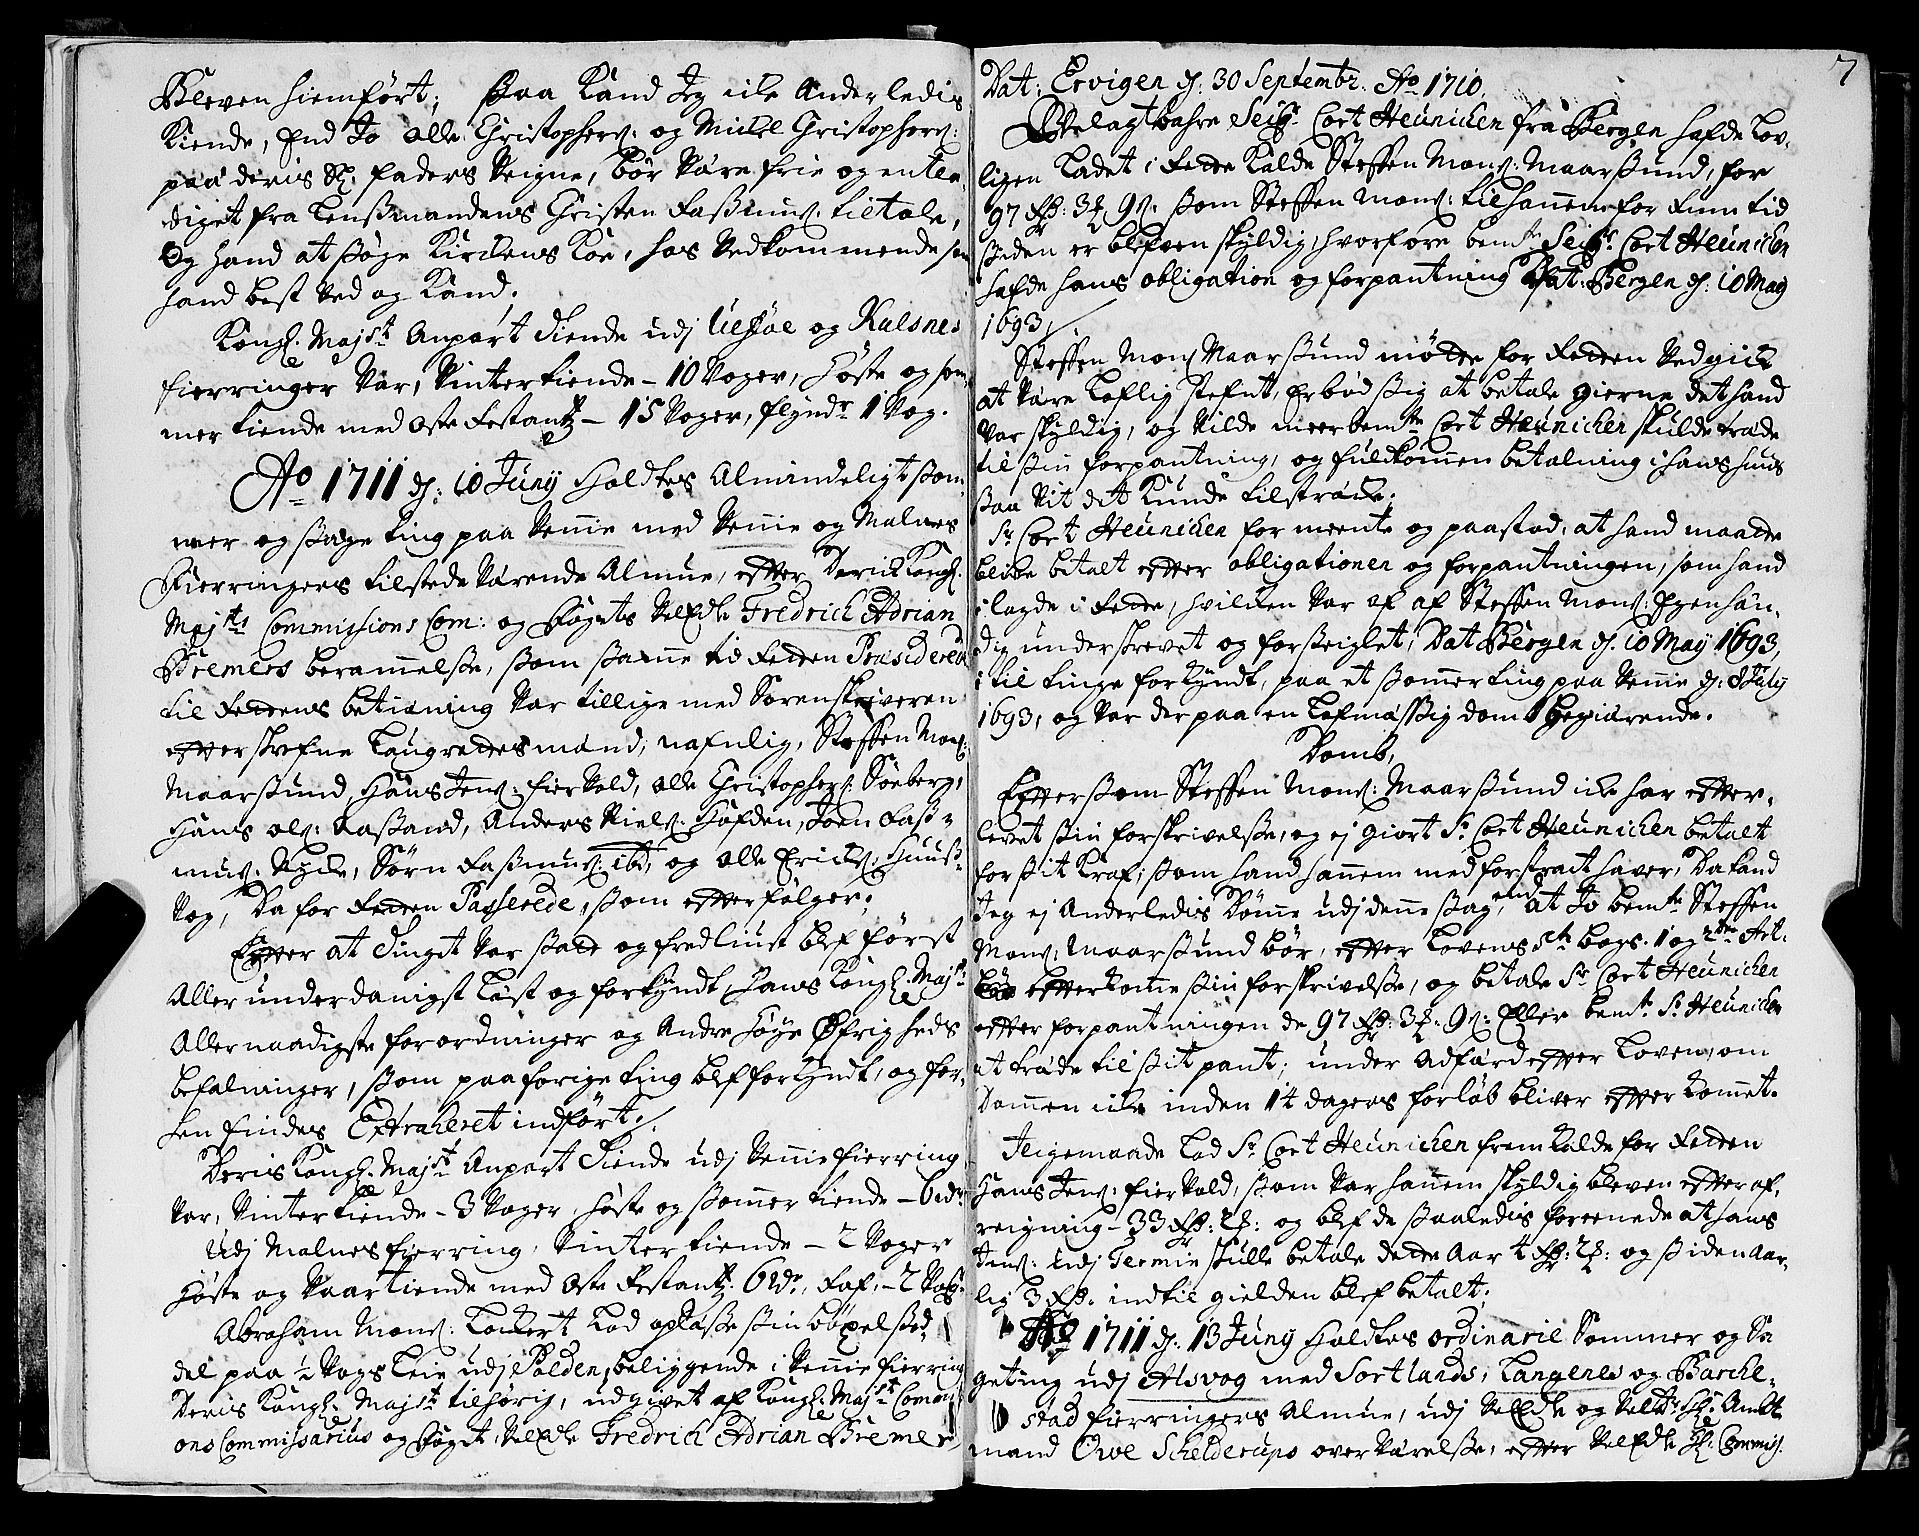 Bleven hiemført; Saa Kand Jeg icke Anderledis
Kiende, End Jo Olle Christophers: og Mickel Christophers:
paa deris Sl: faders Veigne, bør Være frie og entle-
diget fra Lensmandens Christen Rasmus: tiltale,
Og hand at søge Kirckens Koe, hos Vedkommende som
hand best Ved og Kand.
Kongl. Majst Anpart Tiende udj Ulsøe og Kulsnes
fierringer Var, Vintertiende – 10 Voger, Høste og som-
mer tiende med Oste Restantz – 15 Voger, flyndr 1 Vog.
Ao 1711 d: 10 Junij Holdtes Almindeligt som-
mer og Sage ting paa Vennie med Vennie og Malnes
Fierringers tilstede Værende Almue, efter Deris Kongl.
Majts Commissions Com: og Fogets VelEdle Fredrich Adrian
Bremers berammelse, som samme tid Retten Præsiderede
til Rettens betiening Var tillige med Sorenskriveren
efterskrefne Laugrettesmænd, nafnlig, Steffen Mons:
Maarsund, Hans Jens: fierVold, Olle Christophers: Søeberg,
Hans Ols: Aasand, Anders Niels: Hofden, Joen Ras-
mus: Ryck, Sørn Rasmus: ibd, og Olle Ericks: Huus-
Vog, Da for Retten Passerede, som efterfølger;
Efter at Tinget Var Satt og fredliust blef først
Aller underdanigst Læst og forkyndt Hans Kongl. Majst
Allernaadigste forordninger og Andre Høye Øfrigheds
befalninger, som paa forige ting blef forkyndt, og for-
hen findes Extraheret indført ⁄.
Deris Kongl. Majst Anpart Tiende udj Vennie fierring
Var, Vintertiende – 3 Voger, Høste og Sommer tiende – 6 Vdr
Udj Malnes fierring, Vinter tiende – 2 Voger
Høste og Vaartiende med Oste Restantz 6 Vdr, Raf, – 2 Vog.
Abraham Mons: Lockert Lod oplæse sin böxelsed-
del paa ½ Vogs Leie udj Polden, beliggende i Vennie fierring
Deris Kongl. Majst tilhørig, udgivet af Kongl. Majst Commisi-
ons Commissarius og Foget, VelEdle Fredrich Adrian Bremer
7
Dat: Ervigen d: 30 Septembr. Ao 1710.
Velagtbahre Seigr Cort Heunichen fra Bergen hafde Lov-
ligen Ladet i Rette Kalde Steffen Mons: Maarsund, for
97 Rdr: 3 ₰ 9 s: som Steffen Mons: til hannem for Rum tid
siden er blefven skyldig, hvorfore bemte Seigr Cort Heunichen
hafde hans obligation og forpantning Dat: Bergen d: 10 May
1693,
Steffen Mons Maarsund mødte for Retten Vedgick
at Være Loflig stefnt, Erbød sig at betale gierne det hand
Var skyldig, og Vilde meerbemte Cort Heunichen skulde træde
til sin forpantning, og fuldkommen betalning i hans huus
saa Vit det Kunde tilstrecke;
Sr Cort Heunichen formeente og paastod, at hand maatte
blive betalt efter obligationen og forpantningen, som hand
ilagde i Rette, hvilcken Var af af Steffen Mons: Egenhæn-
dig underskrevet og forseiglet, Dat Bergen d. 10 May 1693,
i til tinge forkyndt, paa et Sommerting paa Vennie d: 8 July
1693, og Var der paa en Lofmæssig dom begiærende.
Domb,
Eftersom Steffen Mons: Maarsund icke har efter-
levet sin forskrivelse, og ej giort Sr Cort Heunichen betalt
for sit Kraf, som hand hannem med forstragt haver, Da Kand
Jeg ej Anderledis Dømme udj denne sag, end at Jo bemte Steffen
Mons: Maarsund bør, efter Lovens 5te bogs. 1 og 2den Art:
efterkomme sin forskrivelse, og betale Sr Cort Heunichen
efter forpantningen de 97 Rdr: 3 ₰: 9 s: Eller bemte Sr Heunichen
at træde til sit pant; under Adfærd efter Loven, om
Dommen icke inden 14 dagers forløb bliver efter kommet.
Jligemaade Lod Sr Cort Heunichen frem Kalde for Retten
Hans Jens: fierVold, som Var hannem skyldig bleven efter af-
reigning – 33 Rdr: 2 ₰: og blef de Saaledis foreenede at Hans
Jens: Udj Termin skulle betale dette Aar 4 Rdr: 2 ₰: og siden Aar-
lig 3 Rdr. indtil gielden blef betalt;
Ao 1711 d: 13 Juny Holdtes ordinarie Sommer og Sa-
geting udj Alsvog med Sortlands, Langenes og Barche-
stad fierringers Almue, udj VelEdle og Velbr Hr: Amt-
mand Owe Schelderups over Værelse, efter VelEdle Hr: Commiss.